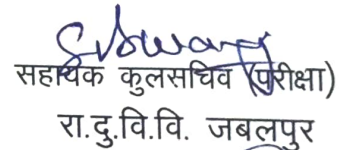 सहायक कुलसचिव (परीक्षा)
रा.दु.वि.वि. जबलपुर